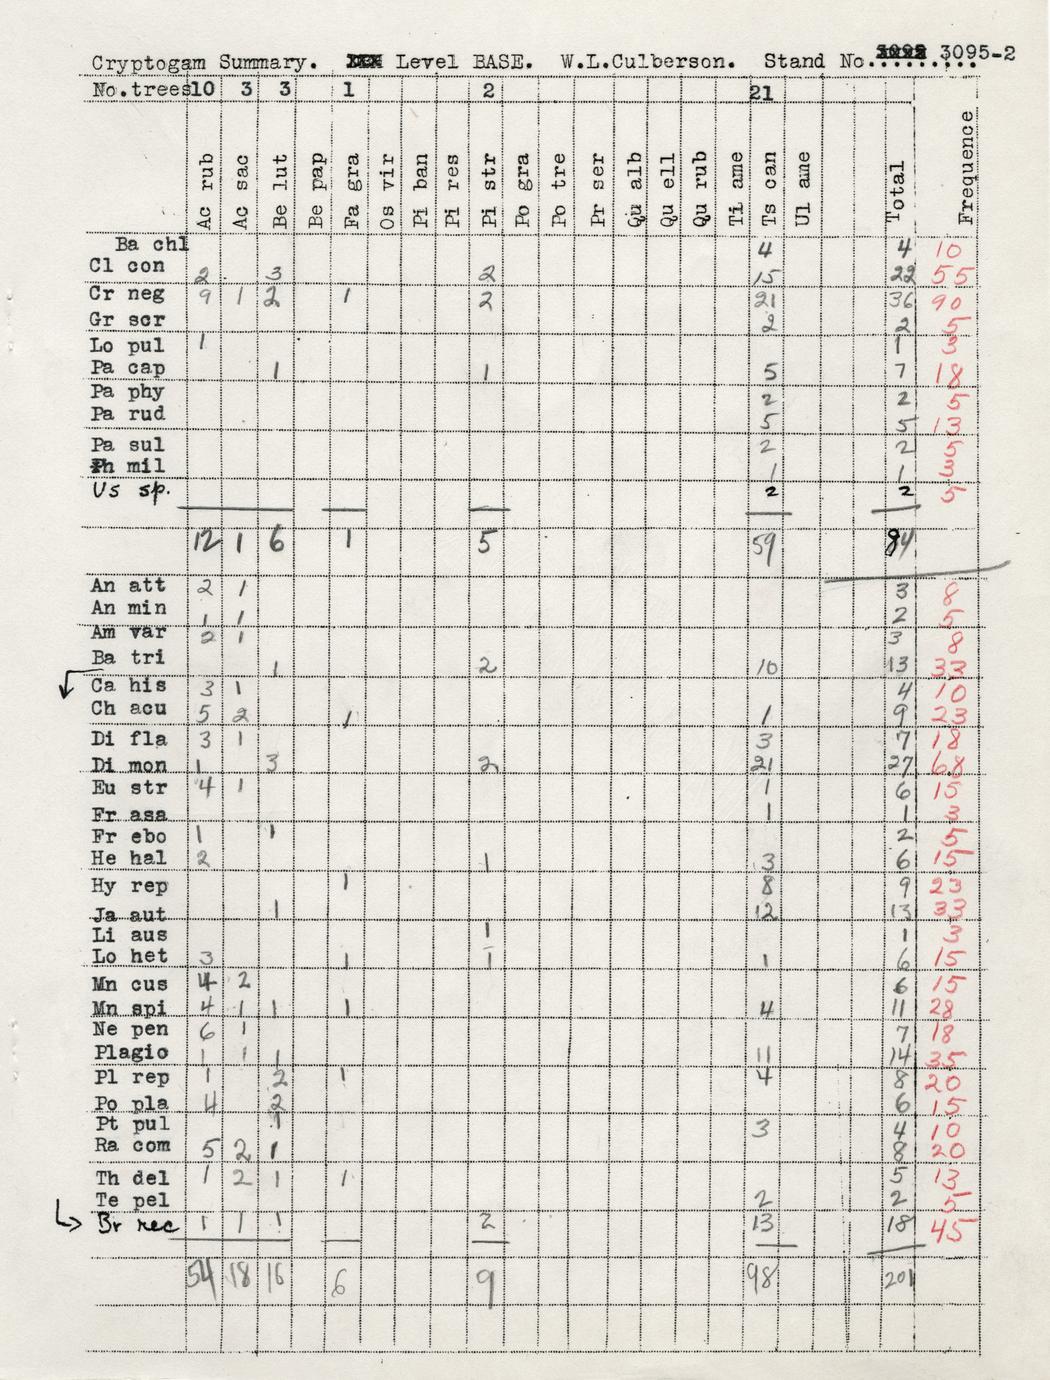 Cryptogam Summary. Level BASE. W.L.Culberson. Stand No......... 3095-2
No.trees 10 3 3 1 2 21
Ac rub Ac sac Be lut Be pap Fa gra Os vir Pi ban Pi res Pi str Po gra Po tre Pr ser Qu alb Qu ell Qu rub Ti ame Ts can Ul ame Total Frequence
Ba chl 4 4 10
Cl con 2 3 2 15 22 55
Cr neg 9 1 2 1 2 21 36 90
Gr scr 2 2 5
Lo pul 1 1 3
Pa cap 1 1 5 7 18
Pa phy 2 2 5
Pa rud 5 5 13
Pa sul 2 2 5
Ph mil 1 1 3
Us sp. 2 2 5
12 1 6 1 5 59 84
An att 2 1 3 8
An min 1 1 2 5
Am var 2 1 3 8
Ba tri 1 2 10 13 33
Ca his 3 1 4 10
Ch acu 5 2 1 1 9 23
Di fla 3 1 3 7 18
Di mon 1 3 2 21 27 68
Eu str 4 1 1 6 15
Fr asa 1 1 3
Fr ebo 1 1 2 5
He hal 2 1 3 6 15
Hy rep 1 8 9 23
Ja aut 1 12 13 33
Li aus 1 1 3
Lo het 3 1 1 1 6 15
Mn cus 4 2 6 15
Mn spi 4 1 1 1 4 11 28
Ne pen 6 1 7 18
Plagio 1 1 1 11 14 35
Pl rep 1 2 1 4 8 20
Po pla 4 2 6 15
Pt pul 1 3 4 10
Ra com 5 2 1 8 20
Th del 1 2 1 1 5 13
Te pel 2 2 5
Br rec 1 1 1 2 13 18 45
54 18 16 6 9 98 201